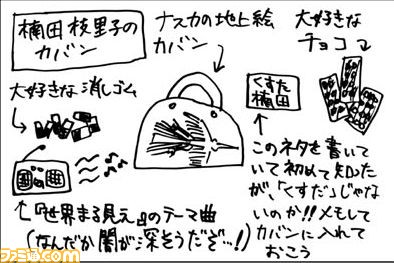 楠田枝里子の
カバン
ナスカの地上絵
カバン
大好きな
チョコ
大好きな消しゴム
くすた
楠田
このネタを書いて
いて初めて知った
が、「くすだ」じゃな
いのか!!メモして
カバンに入れて
おこう
『世界まる見え』のテーマ曲
(なんだか闇が深そうだぞ…!)
ファミ通.com